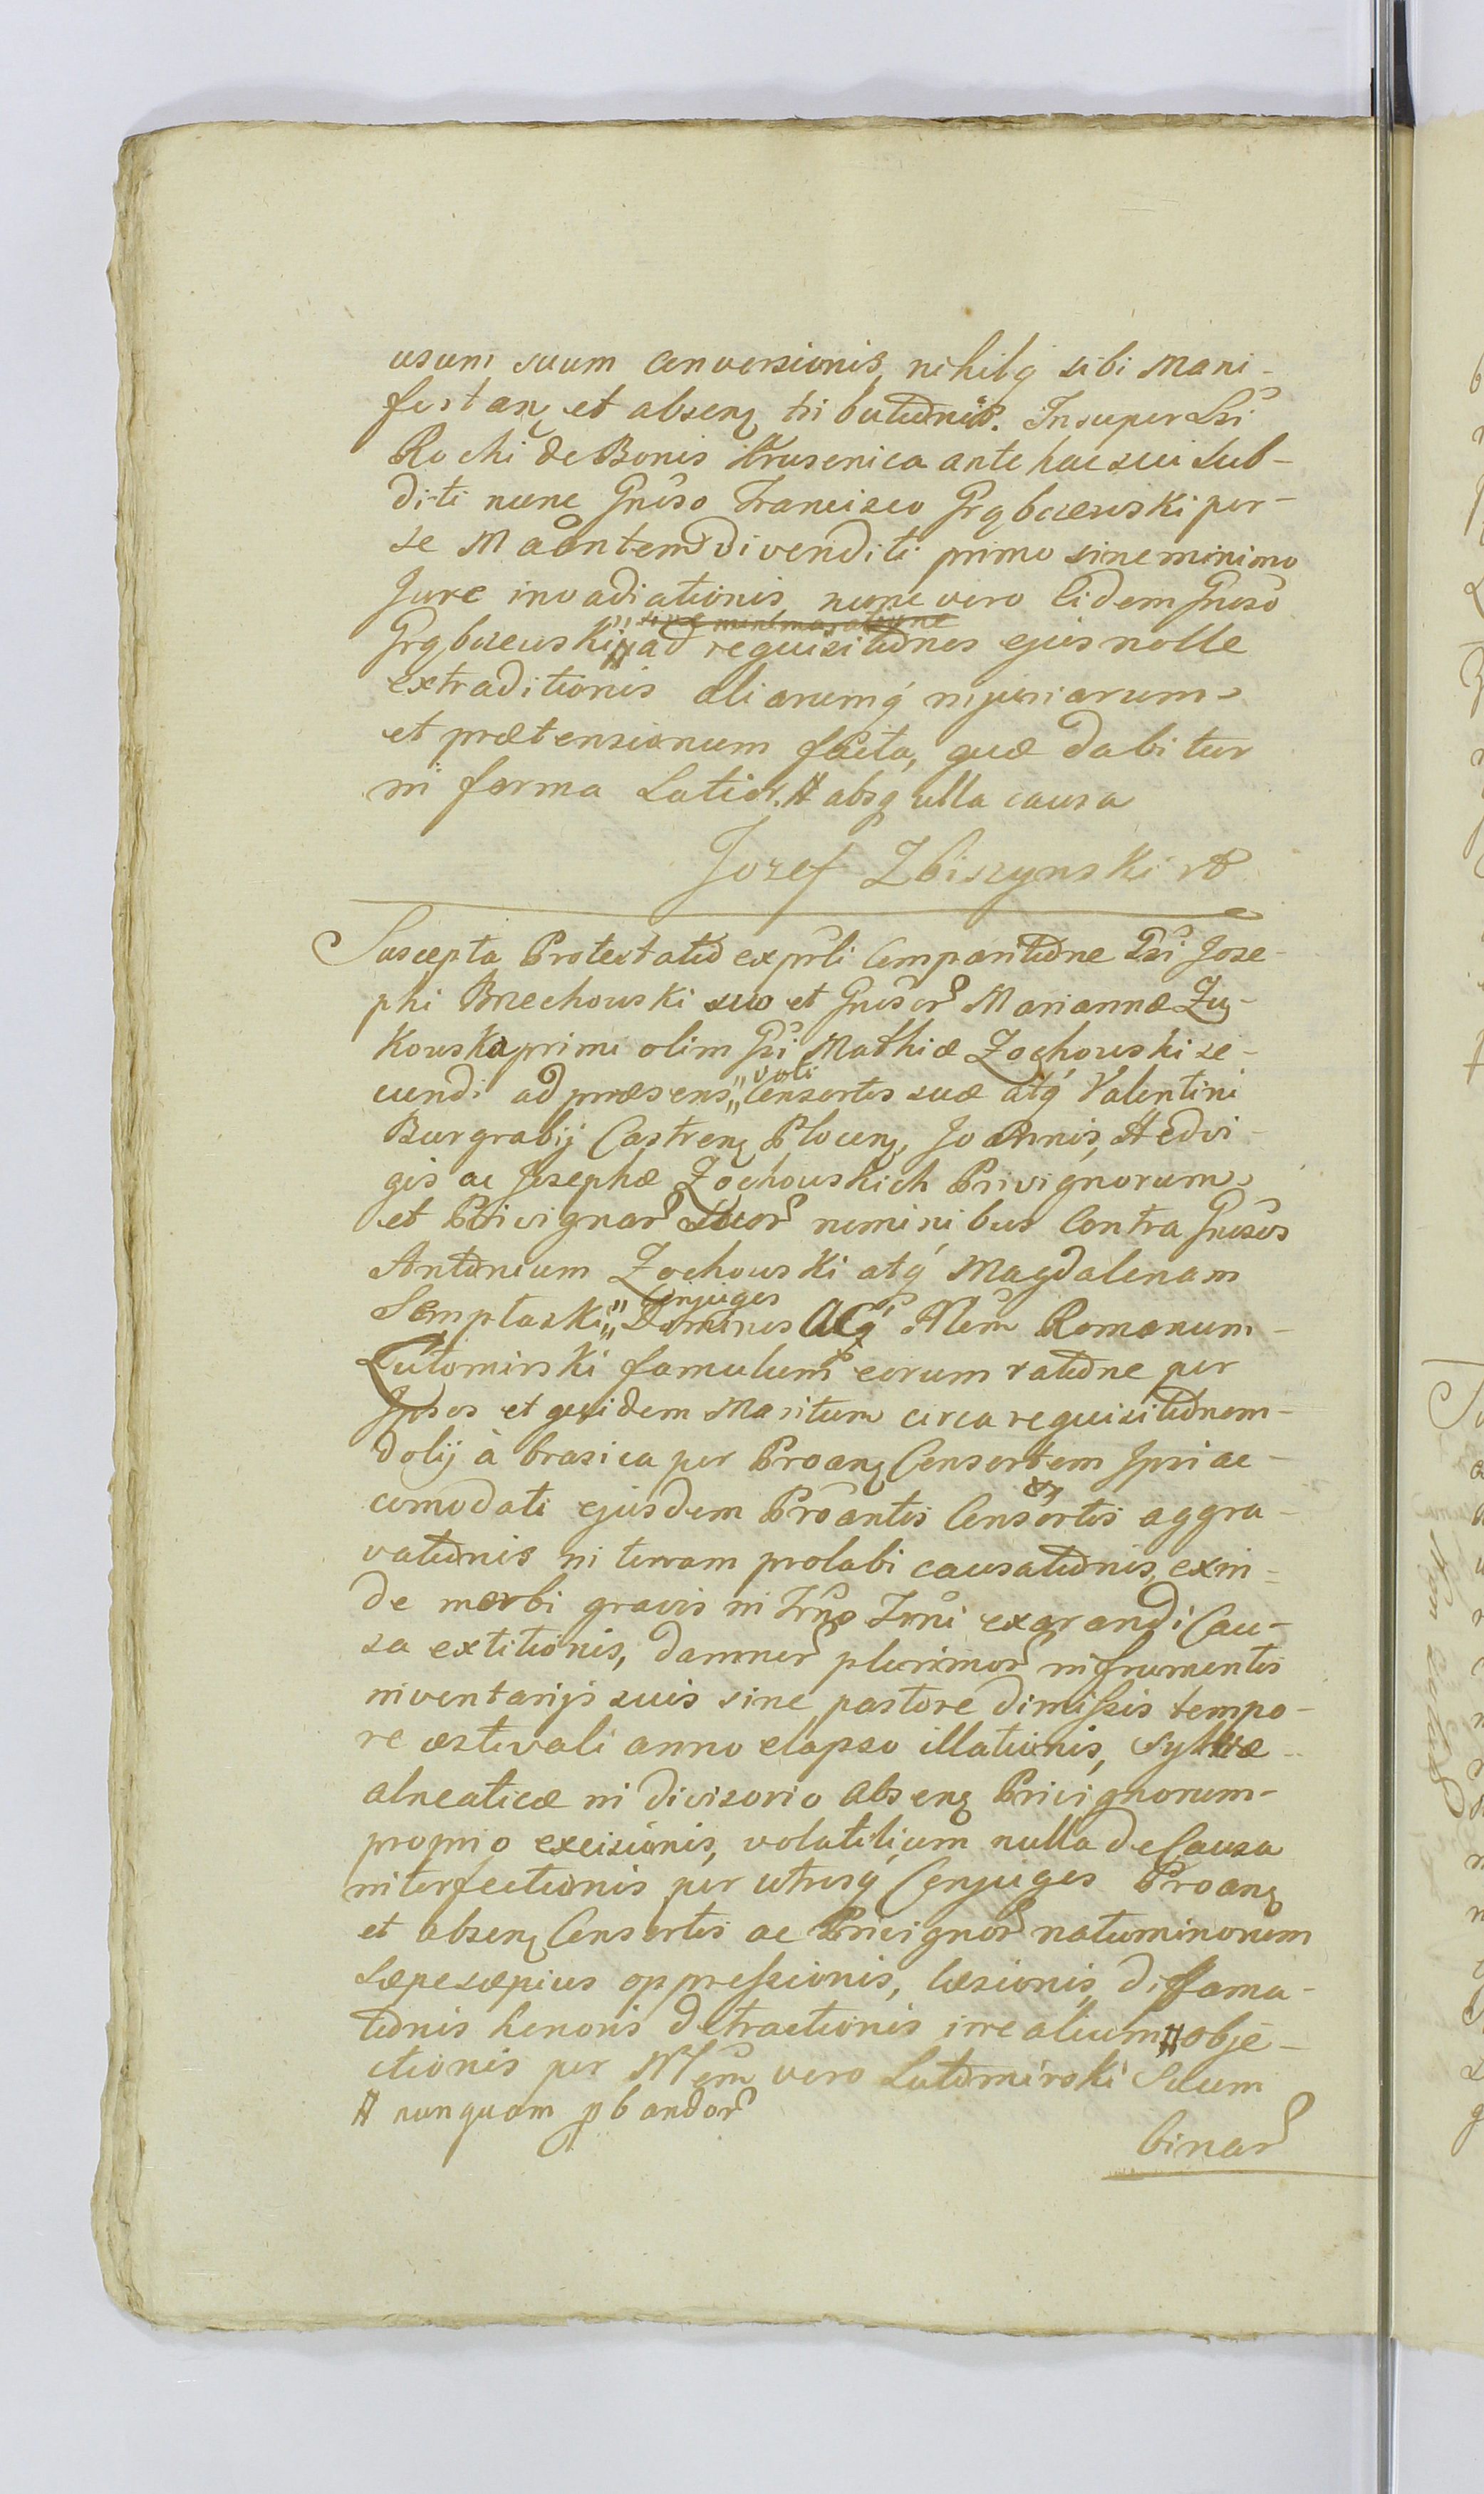 usum suum conversionis, nihilq́ sibi Mani-
festanţ et absenţ tributiõnis. Insuper Lsi
Rochi de Bonis Krusenica ante hac sui sub-
diti nunc Gnõso Francisco Grąbczewski per-
se Maõntem divenditi primo sine minimo
Jure invadiationis, nunc vero Eidem Gnõso
sine minima ratiõne
Grąbczewski,, # ad requisitiõnes ejus nolle
extraditionis aliarumq́ injuriarum
et prætensionum facta, quæ dabitur
in forma Latiõri. # absq́ ulla causa
Jozef Zbiszynski
Suscepta Protestatiõ ex prsli Comparitiõne Gsi Jose-
phi Brzechowski suo et Gnõsor Mariannæ Żu-
kowska primi olim Gsi Mathiæ Zochowski se-
voti
cundi ad præsens,, Consortis suæ atq́ Valentini
Burgrabij Castrenţ Plocenţ, Joannis, Hedvi-
gis ac Josephæ Zochowskich Privignorum
et Privignar Suor nominibus Contra Gnõsos
Antõnium Zochowski atq́ Magdalenam
Conjuges
Semptaski,, Dominos ACq́ Nlem Romanum
Lutomirski famulum eorum ratiõne per
Ipsos et quidem Maritum circa requisitiõnem
dolij à brasica per Proanţ Consortem Ipsi ac-
comodati ejusdem Proãntis Consortis aggra-
vatiõnis in terram prolabi causatiõnis, exin-
de morbi gravis in Trño Trñi exarandi Cau-
sa extitionis, damnor plurimor in frumentis
inventarijs suis sine pastore dimissis tempo-
re æstivali anno elapso illationis, Sylvæ
alneaticæ in divisorio absenţ Privignorum
proprio excisionis, volatilium nulla de Causa
interfectionis per utrosq́ Conjuges Proanţ
et absenţ Consortis ac Privignor natu minorum
sæpe sæpius oppressionis, læsionis, diffama-
tiõnis honoris detractionis irrealium # obje-
ctionis per Nlem vero Lutomirski Solum
# nunquam pbandor
binar